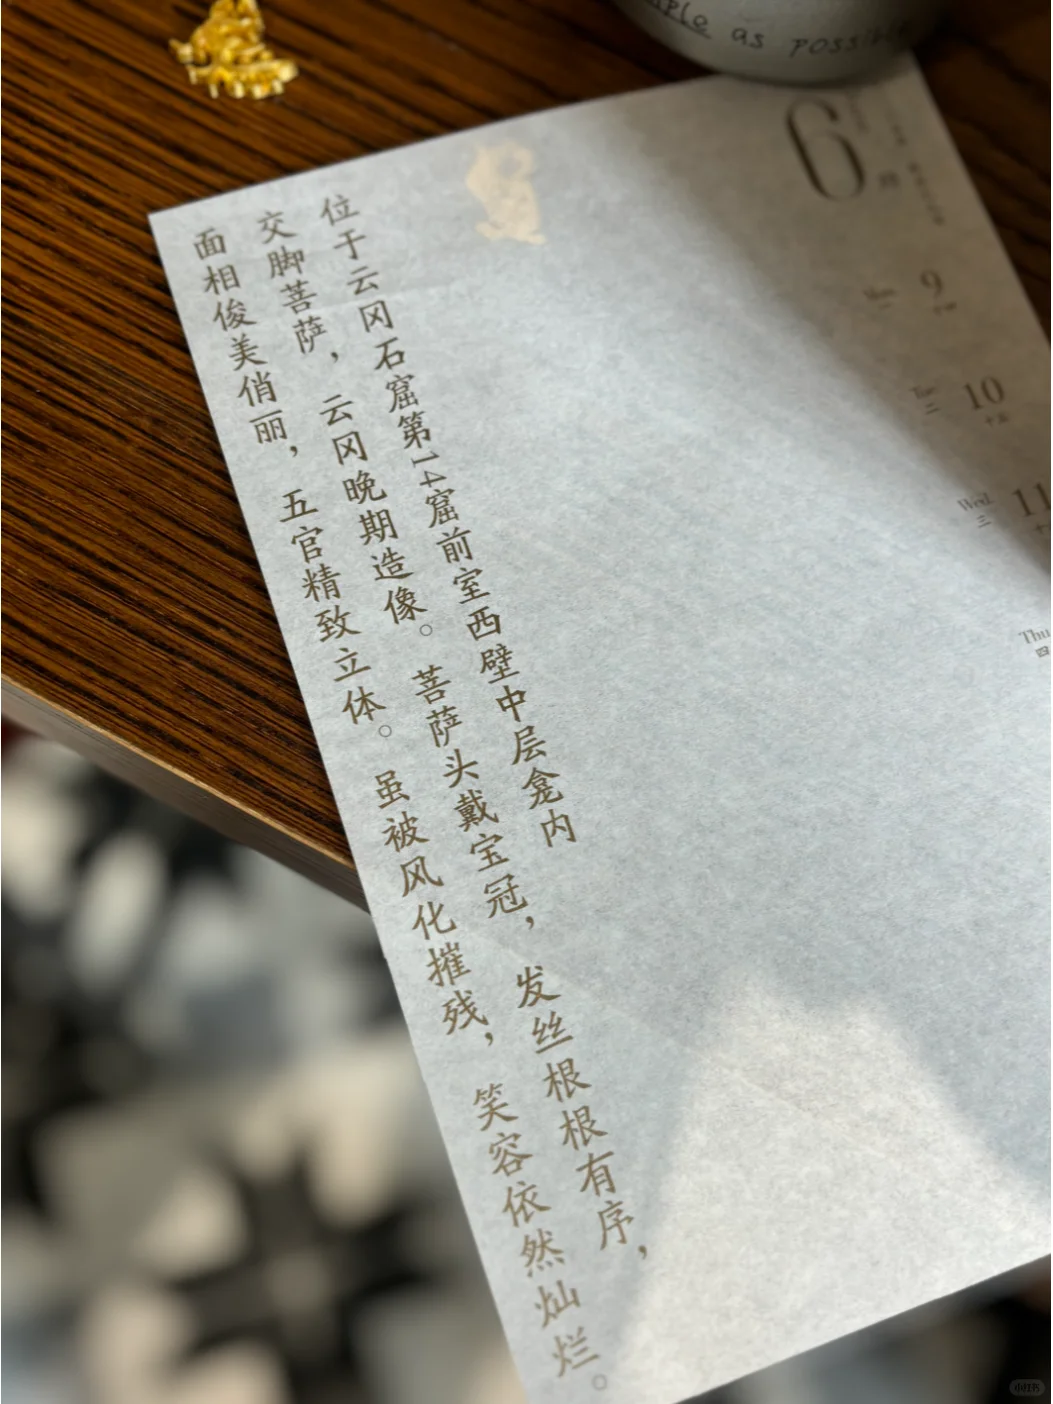 mple as possible
6
位于云冈石窟第14窟前室西壁中层龛内
交脚菩萨，云冈晚期造像。菩萨头戴宝冠，发丝根根有序，
面相俊美俏丽，五官精致立体。虽被风化摧残，笑容依然灿烂。
Mon. 9
一
Tue. 10
二 十五
Wed. 11
三
Thu
四
小红书